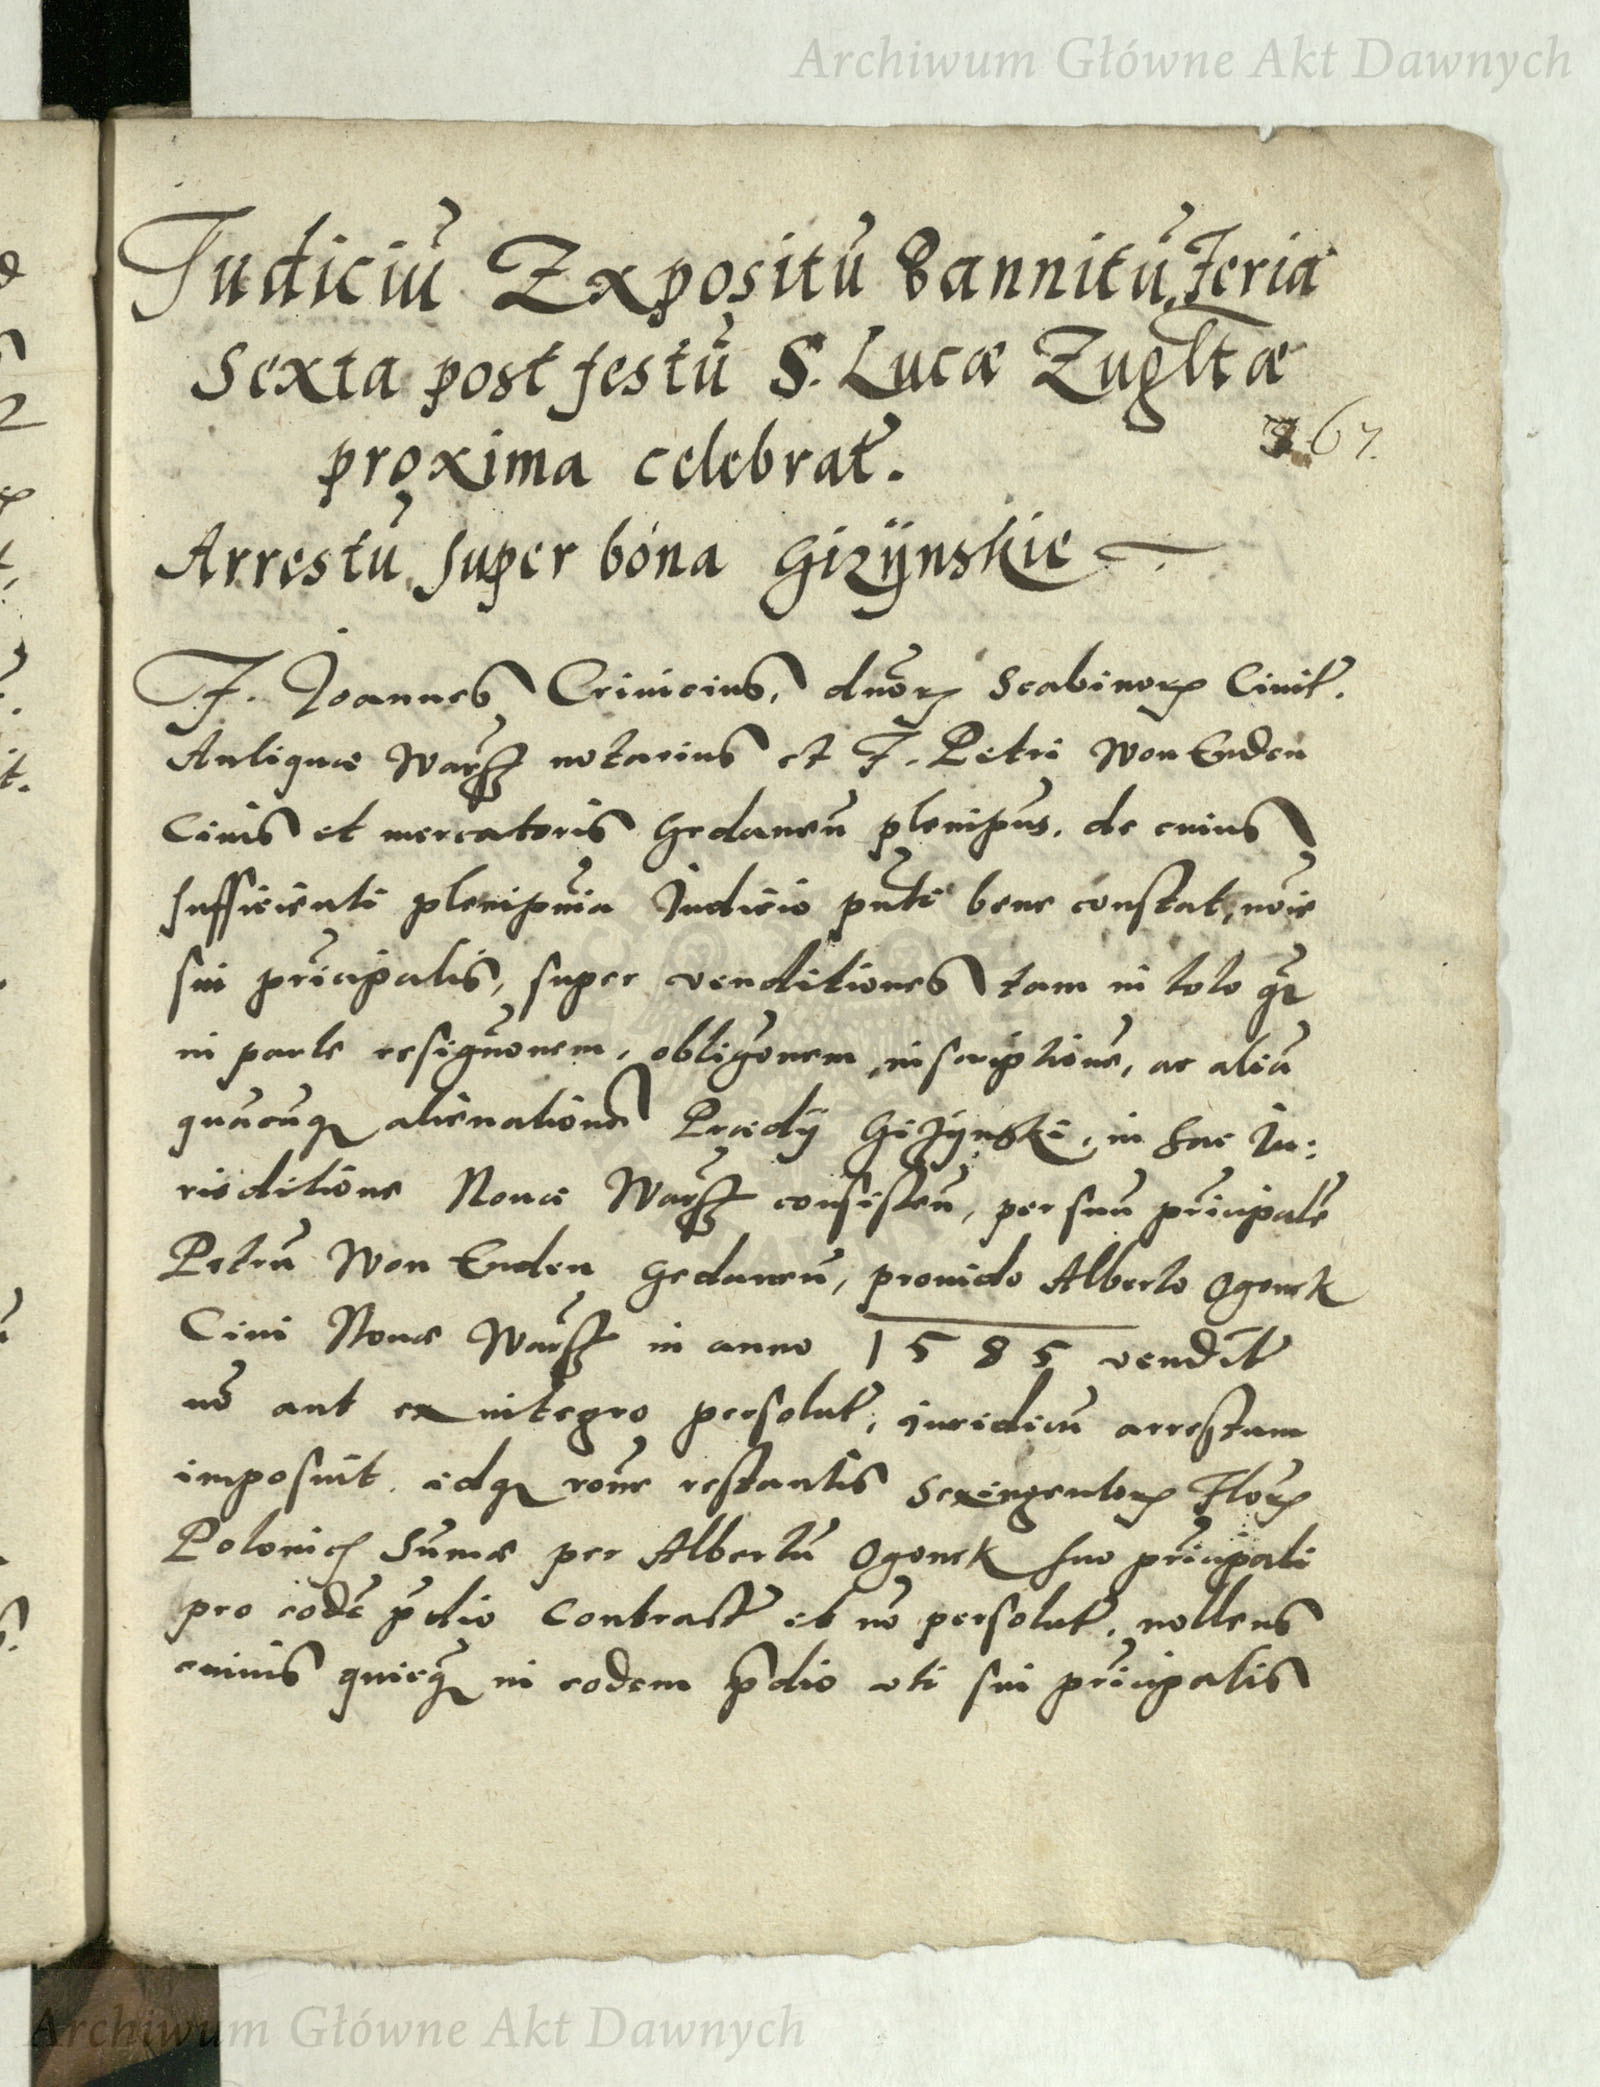 Archiwum Główne Akt Dawnych
Judiciū Expositū Bannitū, Feria
Sexta post festū S. Lucæ Eugltæ
proxima celebrat.
367.
Arrestū super bona Gizÿnskie
F. Joannes Crinicius, dnōrꝝ Scabinorꝝ Civit.
Antiquæ Warss notarius et F. Petri Won Enden
Civis et mercatoris Gedaneñ plenipñs, de cuius
sufficienti plenipñia Judicio pñti bene constat, noīe
sui prīncipalis, super venditiones tam in toto qꝫ
in parte resignōnem, obligōnem, inscriptionē, ac aliā
quācūqꝫ alienationē Prædÿ Giżÿnskie, in hac Ju:
risditione Novæ Warss consisteñ, per suū prīncipalē
Petrū Won Enden Gedaneñ, provido Alberto Ogonek
Civi Novæ Warss in anno 1585 vendit
nō aut ex integro persolut, juridicū arrestum
imposuit, idqꝫ rōne restantis Sexingentorꝝ Florꝝ
Polonicꝝ Summæ per Albertū Ogonek suo prīncipali
pro eodē p̄dio contract et nō persolut, nollens
cuivis quicqꝫ in eodem p̄dio uti sui prīncipalis
Archiwum Główne Akt Dawnych